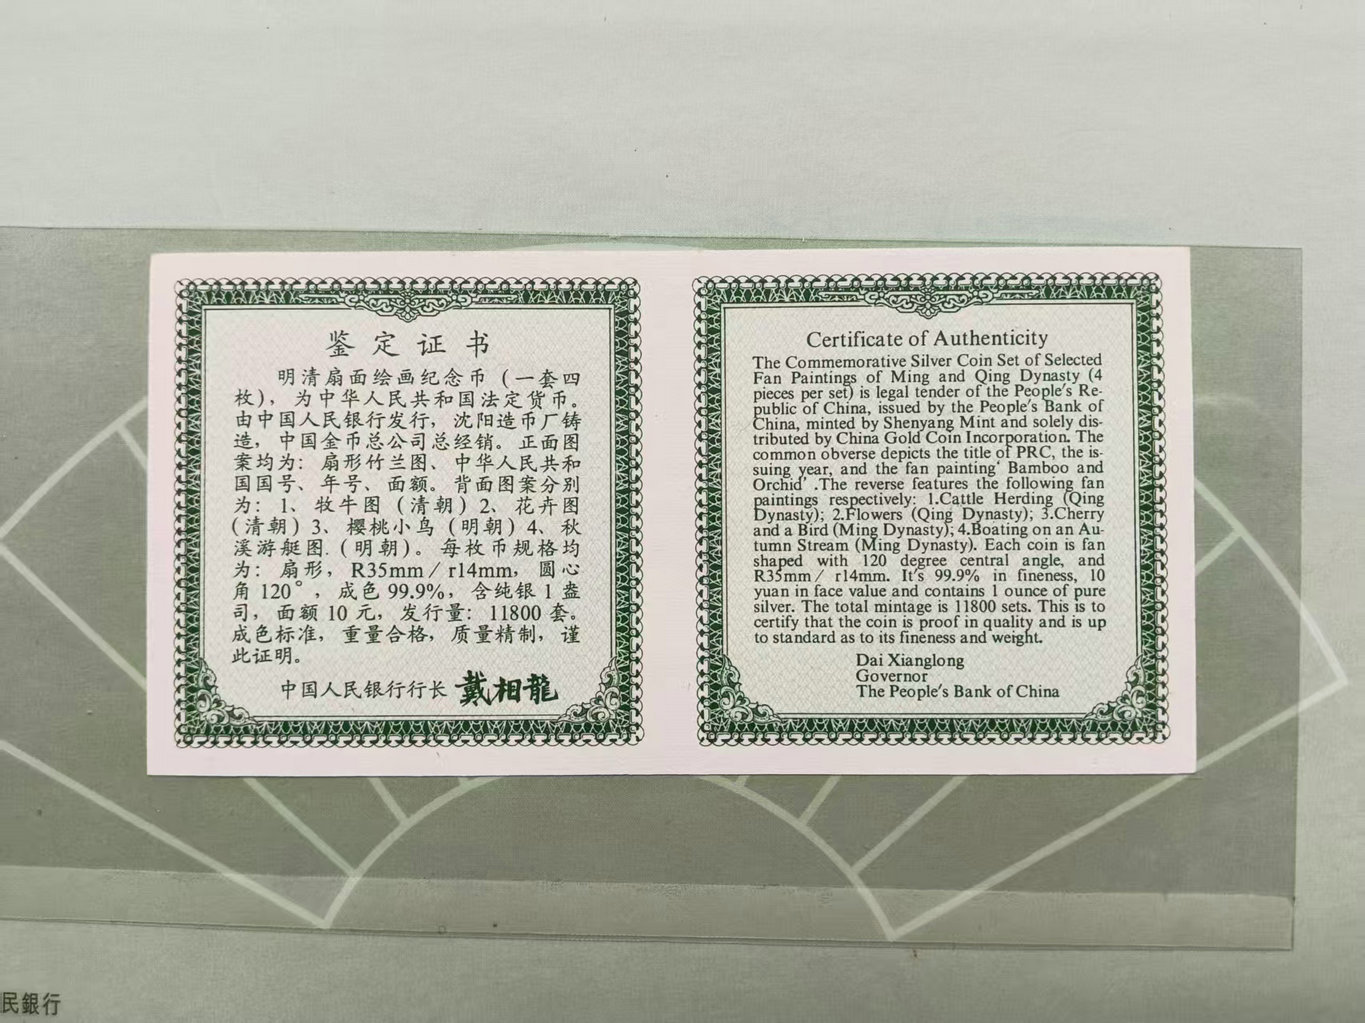 鉴定证书
明清扇面绘画纪念币（一套四
枚），为中华人民共和国法定货币。
由中国人民银行发行，沈阳造币厂铸
造，中国金币总公司总经销。正面图
案均为：扇形竹兰图、中华人民共和
国国号、年号、面额。背面图案分别
为：1、牧牛图（清朝）2、花卉图
(清朝）3、樱桃小鸟（明朝）4、秋
溪游艇图.（明朝）。每枚币规格均
为：扇形，R35mm／r14mm，圆心
角120°，成色99.9%，含纯银1盎
司，面额10元，发行量：11800套。
成色标准，重量合格，质量精制，谨
此证明。
中国人民银行行长 戴相龍
Certificate of Authenticity
The Commemorative Silver Coin Set of Selected
Fan Paintings of Ming and Qing Dynasty (4
pieces per set) is legal tender of the People's Re-
public of China, issued by the People's Bank of
China, minted by Shenyang Mint and solely dis-
tributed by China Gold Coin Incorporation. The
common obverse depicts the title of PRC, the is-
suing year, and the fan painting' Bamboo and
Orchid' .The reverse features the following fan
paintings respectively: 1.Cattle Herding (Qing
Dynasty); 2.Flowers (Qing Dynasty); 3.Cherry
and a Bird (Ming Dynasty); 4.Boating on an Au-
tumn Stream (Ming Dynasty). Each coin is fan
shaped with 120 degree central angle, and
R35mm/ r14mm. It's 99.9% in fineness, 10
yuan in face value and contains 1 ounce of pure
silver. The total mintage is 11800 sets. This is to
certify that the coin is proof in quality and is up
to standard as to its fineness and weight.
Dai Xianglong
Governor
The People's Bank of China
民銀行